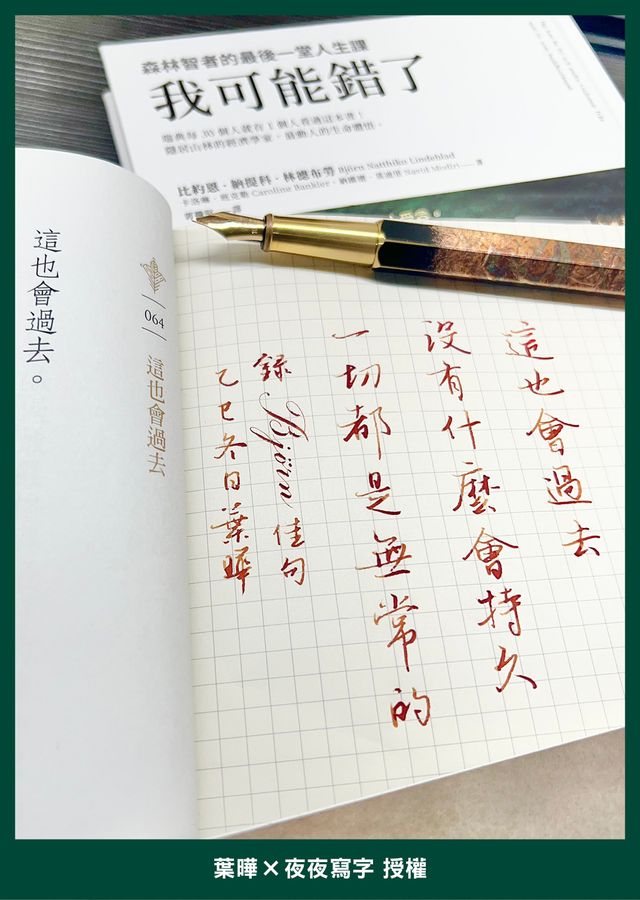 森林智者的最後一堂人生課
我可能錯了
瑞典每30個人就有1個人看過這本書!
隱居山林的經濟學家,撼動人的生命體悟。
比約恩.納提科.林德布勞 Björn Natthiko Lindeblad
卡洛琳.班克勒 Caroline Bankler
著
這也會過去。
064
這也會過去
這也會過去
沒有什麼會持久
一切都是無常的
錄Björn佳句
乙巳冬日葉曄
葉曄×夜夜寫字 授權